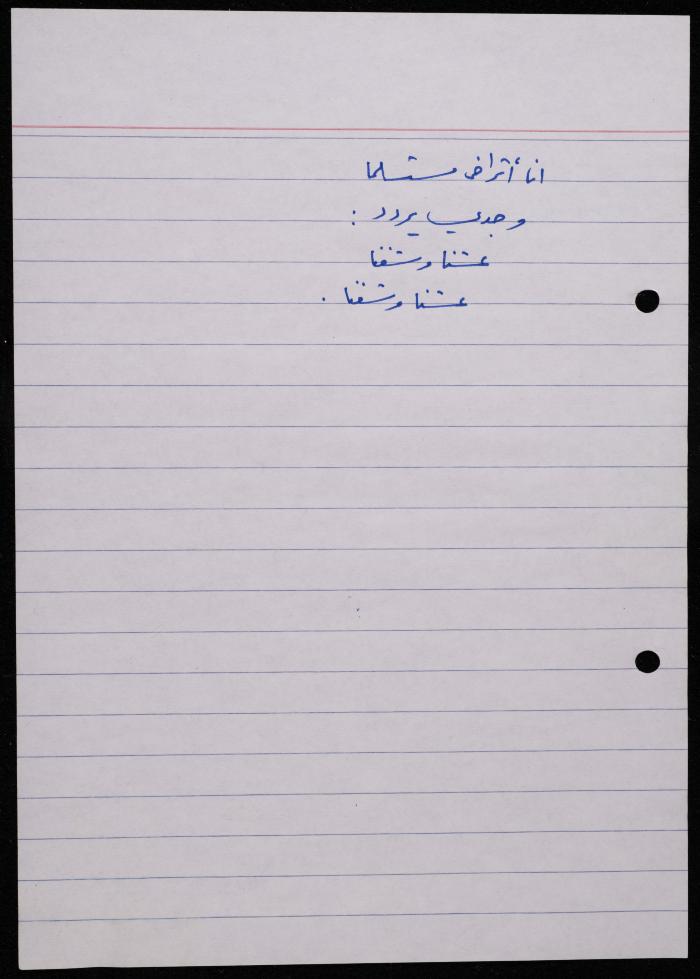 انا أتراخى مستسلما
وجدي يردد :
عشنا وشفنا
عشنا وشفنا .